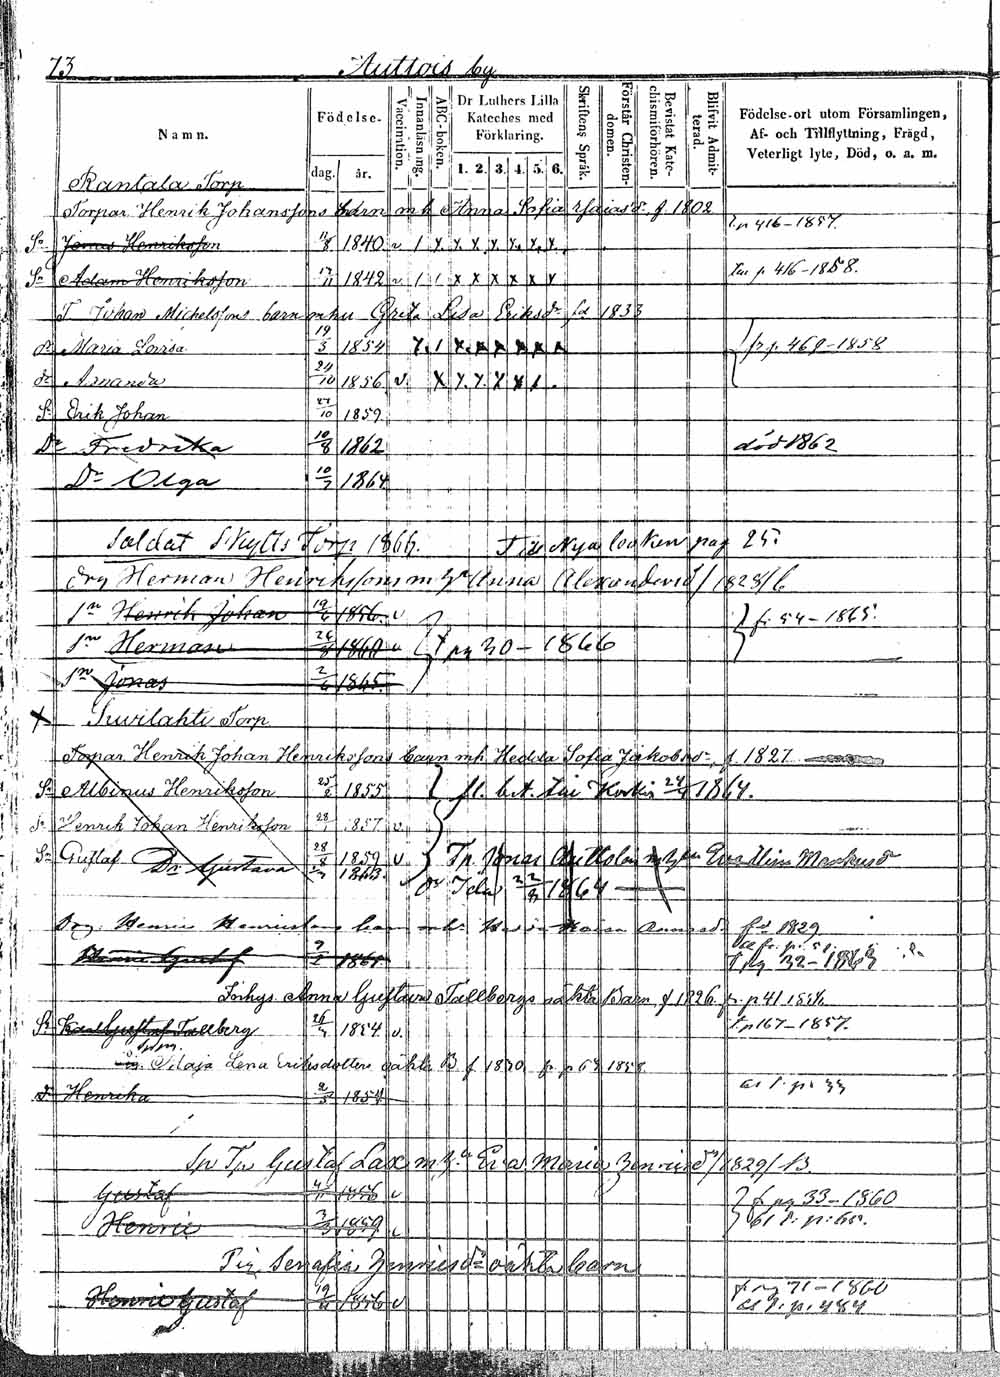 73 Auttois by
Namn.
Födelse.
dag. år.
Vaccination.
Innanläsning.
ABC-boken.
Dr Luthers Lilla Kateches med Förklaring.
1. 2. 3. 4. 5. 6.
Skriftens Språk.
Förstår Christendomen.
Bevistat Katechismiförhören.
Blifvit Admitterad.
Födelse-ort utom Församlingen,
Af- och Tillflyttning, Frägd,
Veterligt lyte, Död, o. a. m.
Rantala Torp
Torpar Henrik Johanssons barn mh Anna Sofia Esaiasdr f 1802
Sn Jonas Henriksson 11/8 1840 v 1 x x x x x x p 416-1857.
Sn Adam Henriksson 17/11 1842 v 1 1 x x x x x x p 416-1858.
T Johan Michelssons barn m hu Greta Lisa Eriksdr fd 1833
dr Maria Lovisa 19/3 1854 fr p. 469-1858
dr Amanda 24/10 1856 v.
Sn Erik Johan 27/10 1859.
Dr Fredrika 10/8 1862 död 1862
Dr Olga 10/7 1864
Soldat Skytts Torp 1866. Till Nya boken pag 25.
drg Herman Henrikssons m h Anna Alexandersd /1828/ b
sn Henrik Johan 19/6 1856 v fr. 54-1865.
sn Herman 26/8 1860 v pg 30-1866
sn Jonas 2/6 1865.
x Suvilahti Torp
Torpar Henrik Johan Henrikssons barn mh Hedda Sofia Jakobsdr f 1827
Sn Albinus Henriksson 25/2 1855 fl. bet. till 1864.
sn Henrik Johan Henriksson 28/1 1857 v.
Sn Gustaf 28/8 1859 v Tp Jonas Auttolain Evelin Markusdr
Dr Gustava 1863 dr Ida 22/8 1864
Drg. Henric Henrikssons barn mh Maria fd 1829
Henric Gustaf 9/2 1861 pg 32-1863
Inhys. Anna Gustava Tallbergs oäkta Barn f 1826 fr p 41 1856
Sn Karl Gustaf Tallberg 26/7 1854 v. p 167-1857.
Maja Lena Eriksdotters oäkta B f 1830 fr p 63 1858
dr Henrika 2/5 1854 p. 33
Sp Tp Gustaf Lax m h Eva Maria Henricsdr /1829/ B.
Gustaf 1856 v fr pg 33-1860
Henric 3/5 1859 v p. 65.
Pig Serafia Henricsdrs oäkta barn
Henric Gustaf 19/4 1856 v fr pg 71-1860
p. 484